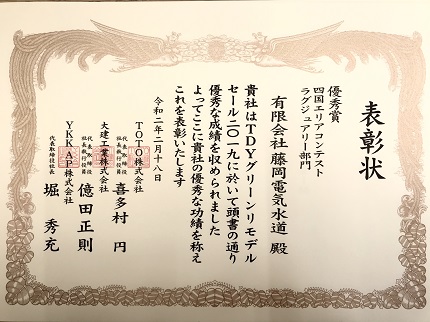 表彰状
優秀賞
四国エリアコンテスト
ラグジュアリー部門
有限会社 藤岡電気水道 殿
貴社はTDYグリーンリモデル
セール二〇一九に於いて頭書の通り
優秀な成績を収められました
よってここに貴社の優秀な功績を称え
これを表彰いたします
令和二年二月十八日
TOTO株式会社
代表取締役
社長執行役員
喜多村 円
大建工業株式会社
代表取締役
社長執行役員
億田正則
YKKAP株式会社
代表取締役社長
堀 秀充